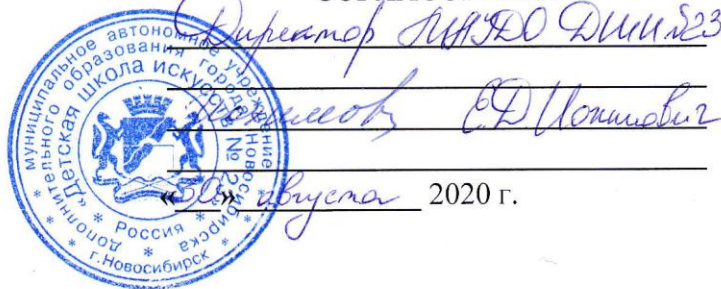 Директор МАУДО ДШИ №23
Е.Д. Ионинович
«30» августа 2020 г.
муниципальное автономное учреждение
дополнительного образования города Новосибирска
"Детская школа искусств № 23"
* Россия *
* г. Новосибирск *